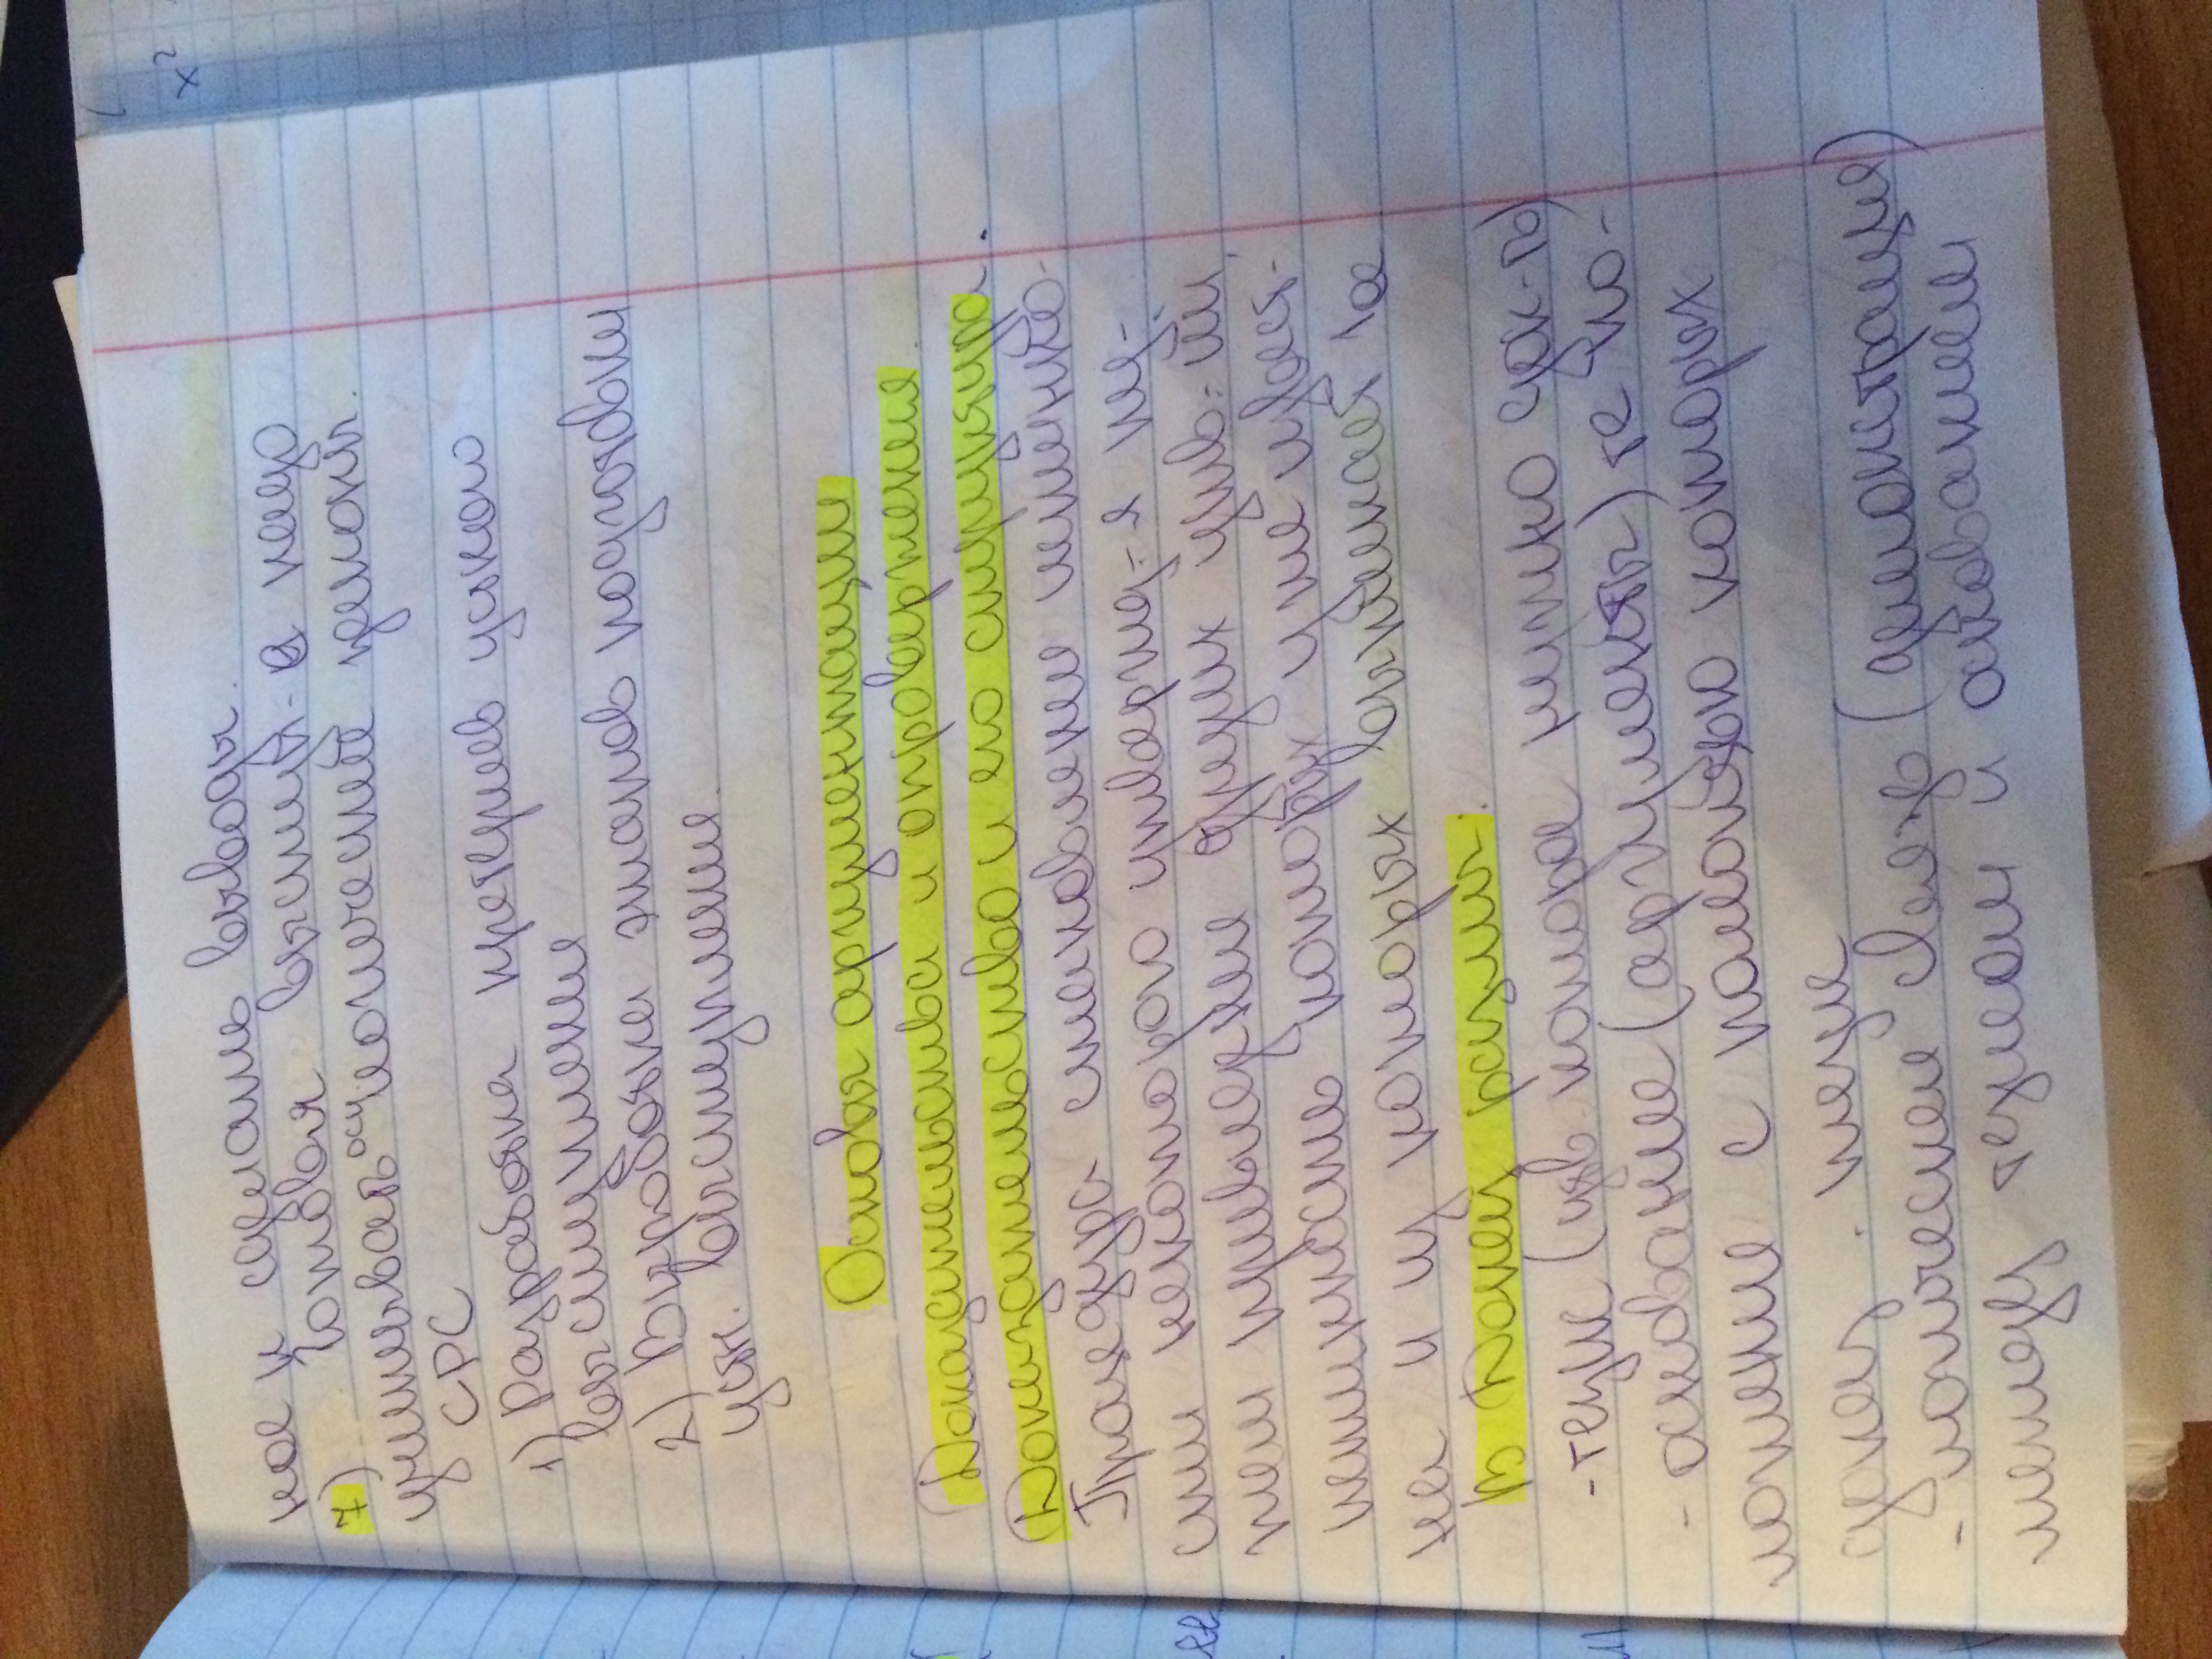 ное и сделать выводы.
7) Готовя выступ-е надо
учитывать осн логические законы.
СРС
1) Разработка критериев устного
выступления
2) Выработка этапов подготовки
устн. выступления.
Основы аргументации
Доказательства и опровержения.
Доказательство и его структура.
Процедура становления истинно-
сти некоторого утвержд-я пу-
тем приведения других утв-ий,
истинность которых уже извест-
на и из которых вытекает 1ое
В Доказ различ:
-тезис (утв которое нужно док-ть)
- основание (аргументы) те по-
ложение с помощью которых
доказ. тезис
- логическая связь (демонстрация)
между тезисом и основанием
x²